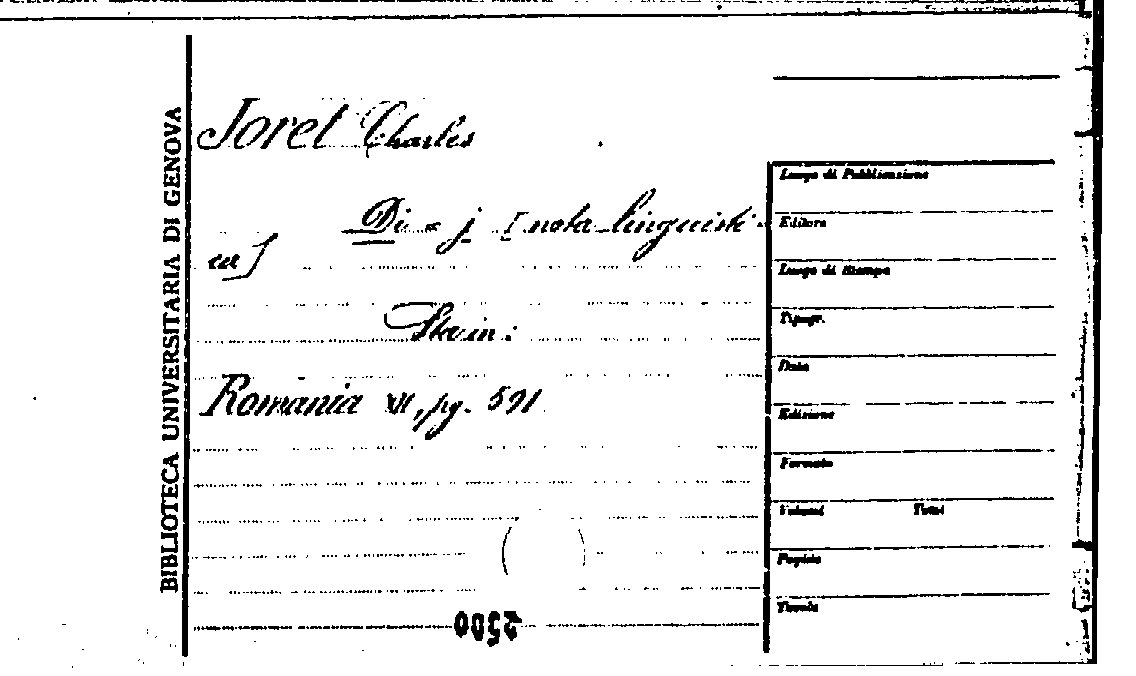 BIBLIOTECA UNIVERSITARIA DI GENOVA
Joret Charles
Di = j [nota linguisti-
ca]
Sta in:
Romania XII, pg. 591
2500
Luogo di Pubblicazione
Editore
Luogo di Stampa
Tipogr.
Data
Edizione
Formato
Volumi Tomi
Pagine
Tavole